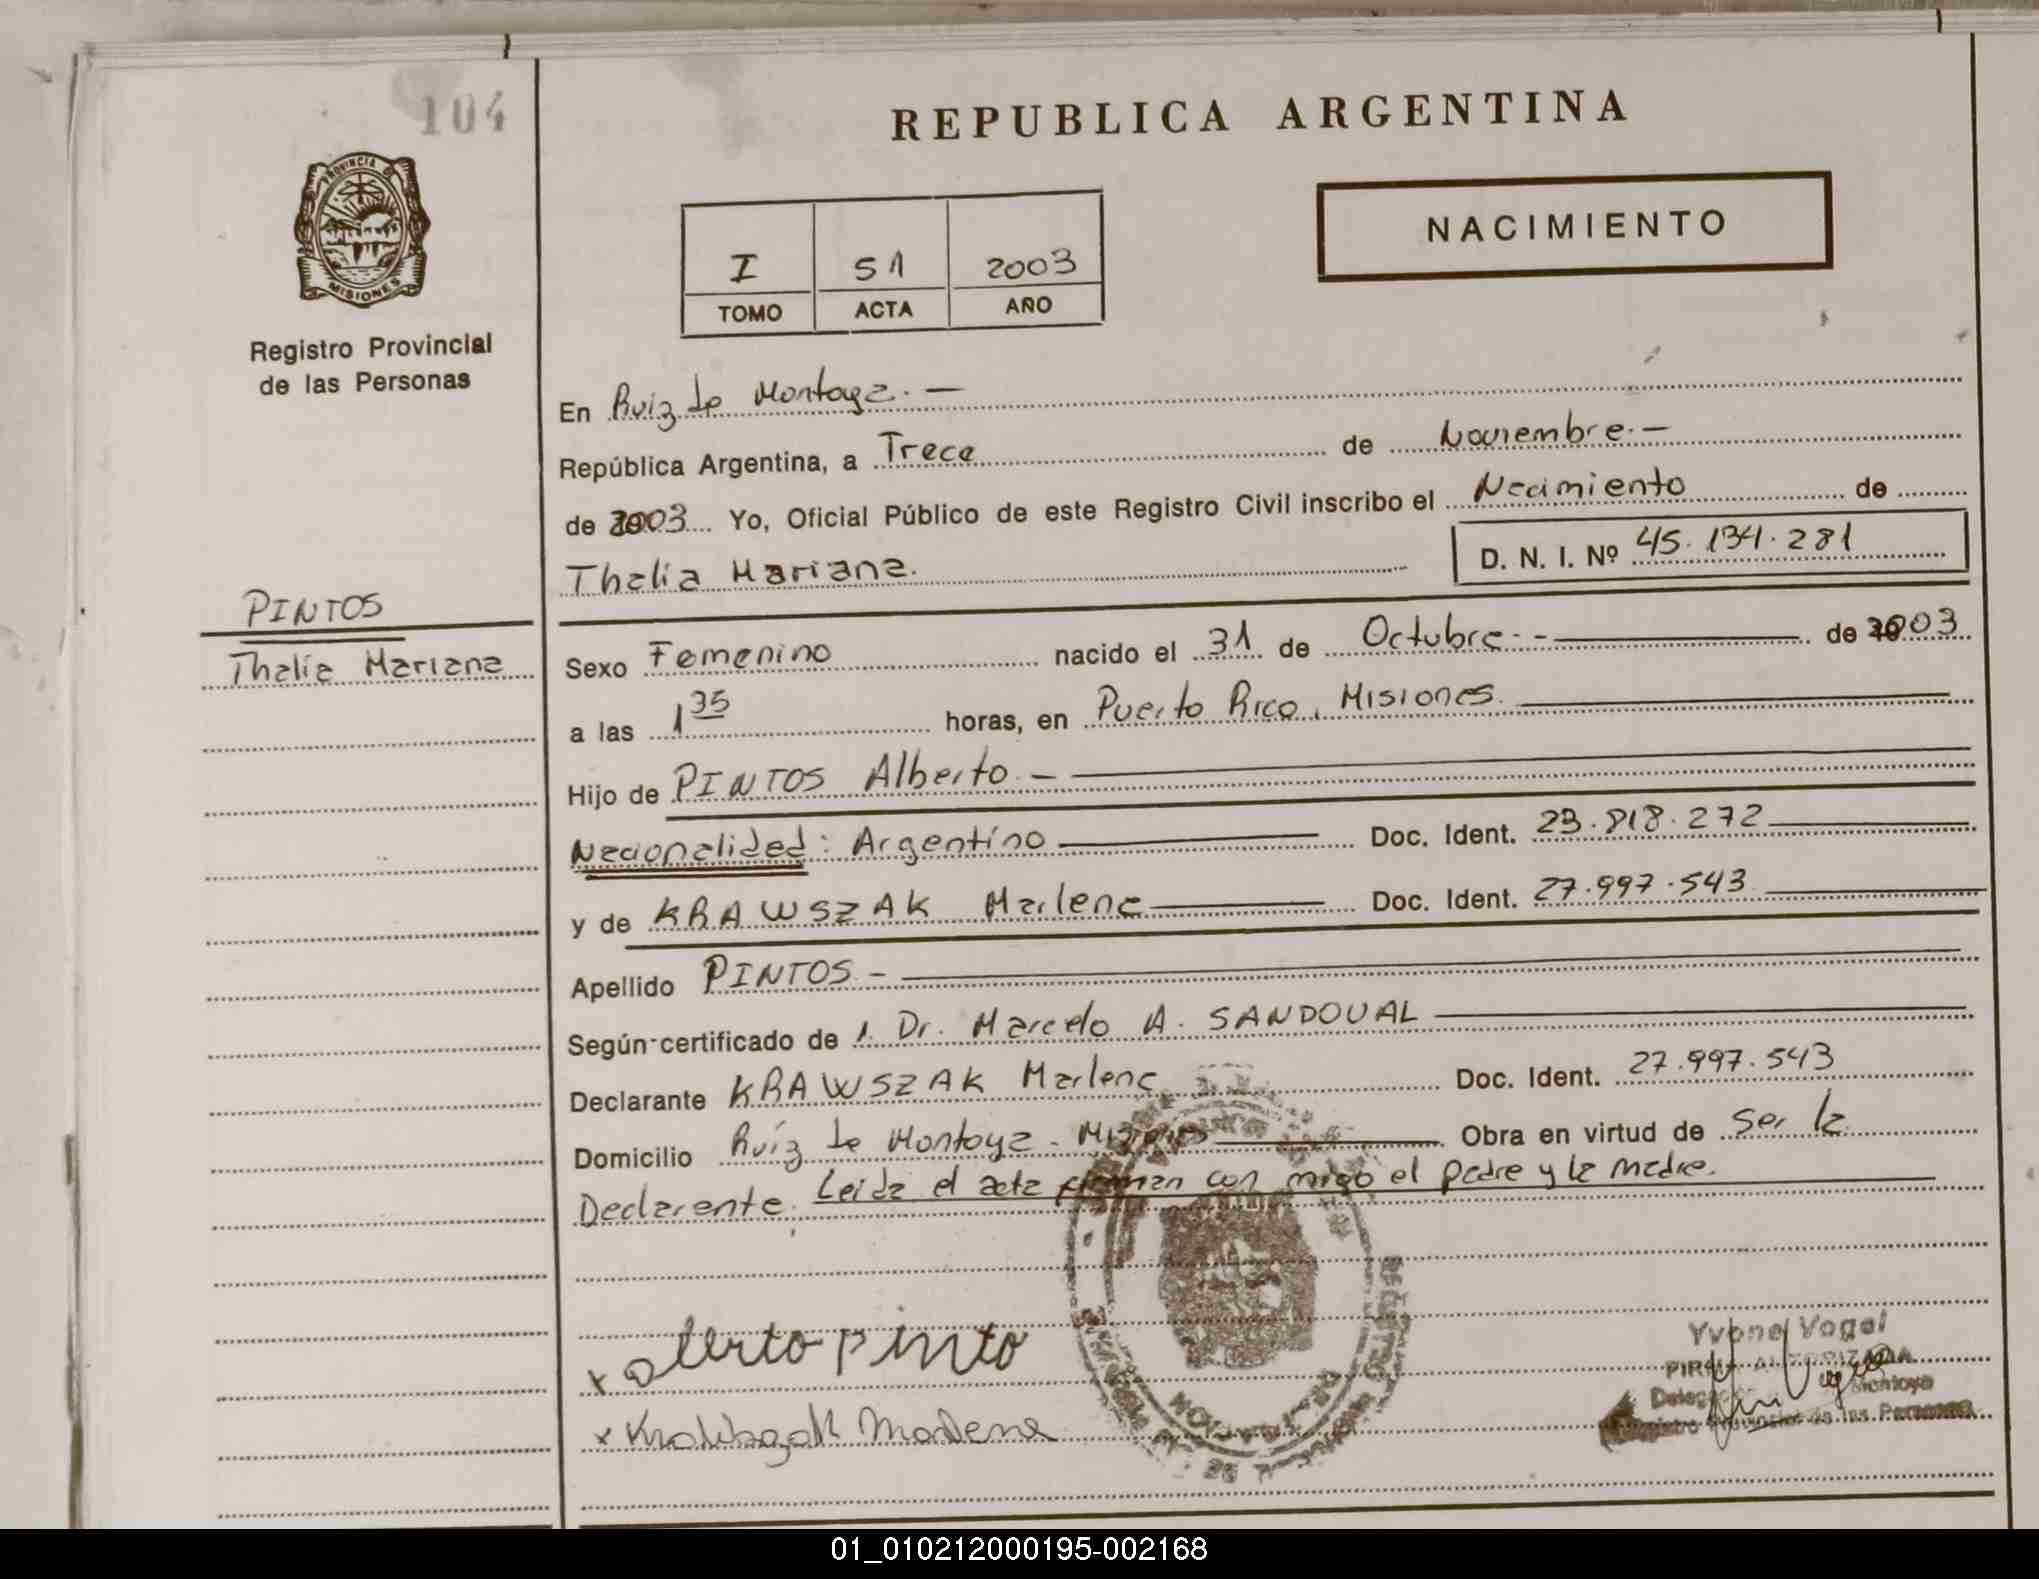 104
REPUBLICA ARGENTINA
PROVINCIA DE
MISIONES
Registro Provincial
de las Personas
I 51 2003
TOMO ACTA AÑO
NACIMIENTO
En Ruiz de Montoya. —
República Argentina, a Trece de Noviembre. —
de 2003 Yo, Oficial Público de este Registro Civil inscribo el Nacimiento de
Thalia Mariana. D. N. I. Nº 45.134.281
PINTOS
Thalia Mariana
Sexo Femenino nacido el 31 de Octubre. - de 2003
a las 1 35 horas, en Puerto Rico, Misiones.
Hijo de PINTOS Alberto. —
Nacionalidad: Argentino Doc. Ident. 23.818.272
y de KRAWSZAK Marlene Doc. Ident. 27.997.543
Apellido PINTOS. -
Según certificado de 1. Dr. Marcelo A. SANDOVAL
Declarante KRAWSZAK Marlene Doc. Ident. 27.997.543
Domicilio Ruíz de Montoya - Misiones Obra en virtud de ser la
Declarente. Leida el acta firman con migo el padre y la madre.
x alerto pinto
x Marlene
Yvone Vogel
FIRMA AUTORIZADA
Montoya
Registro Provincial de las Personas
01_010212000195-002168